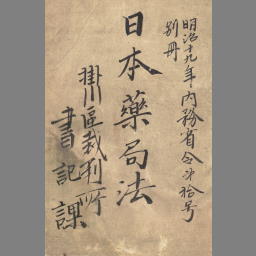 明治十九年内務省令第拾号
別冊
日本薬局法
掛川區裁判所
書記課